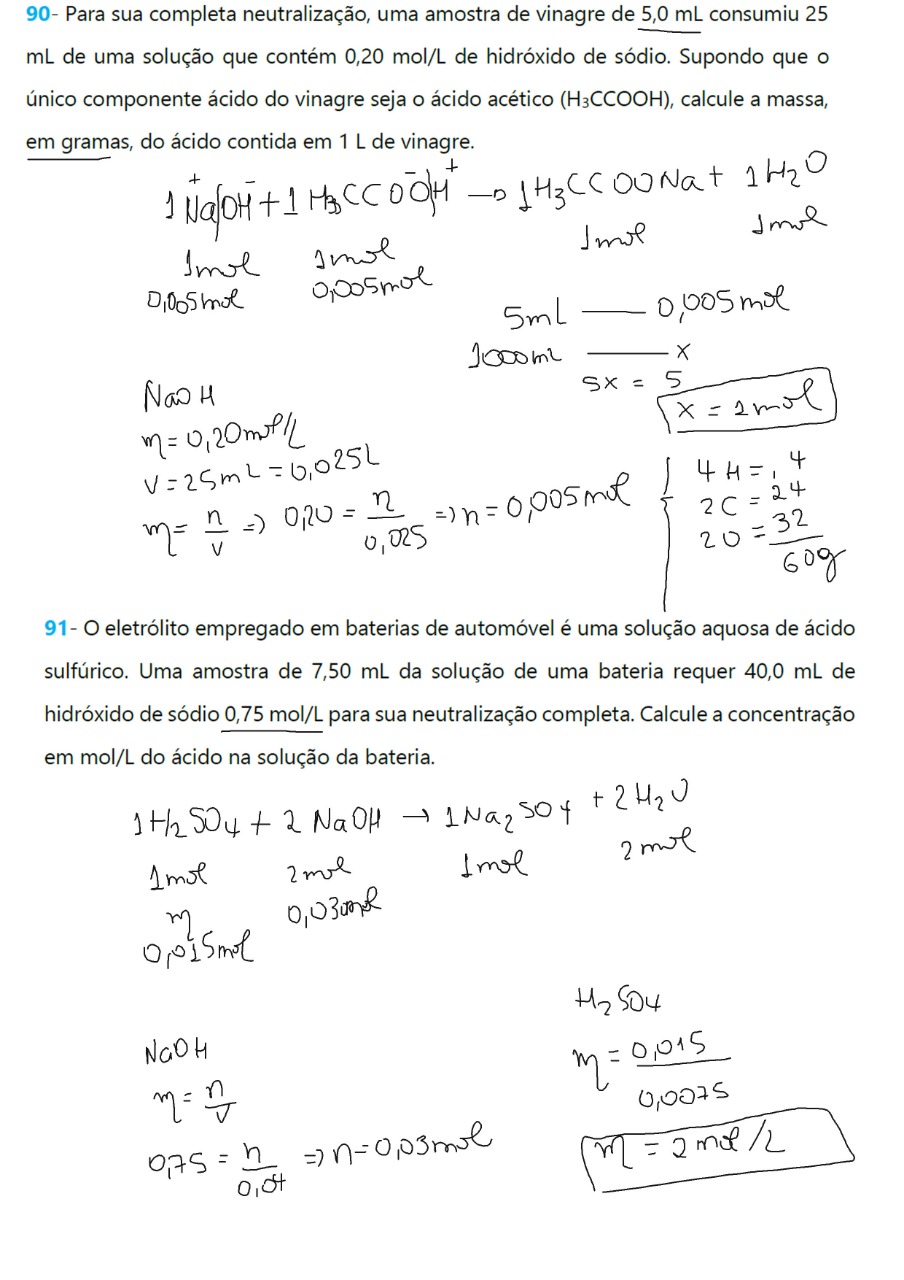 90- Para sua completa neutralização, uma amostra de vinagre de 5,0 mL consumiu 25
mL de uma solução que contém 0,20 mol/L de hidróxido de sódio. Supondo que o
único componente ácido do vinagre seja o ácido acético (H3CCOOH), calcule a massa,
em gramas, do ácido contida em 1 L de vinagre.
1 Na⁺OH⁻ + 1 H3CCOO⁻H⁺ → 1H3CCOONa + 1H2O
1mol 1mol 1mol 1mol
0,005mol 0,005mol
5mL — 0,005mol
1000mL — x
5x = 5
x = 1mol
NaOH
m = 0,20mol/L
V = 25mL = 0,025L
m = n/v => 0,20 = n/0,025 => n = 0,005mol
4H = 4
2C = 24
2O = 32
60g
91- O eletrólito empregado em baterias de automóvel é uma solução aquosa de ácido
sulfúrico. Uma amostra de 7,50 mL da solução de uma bateria requer 40,0 mL de
hidróxido de sódio 0,75 mol/L para sua neutralização completa. Calcule a concentração
em mol/L do ácido na solução da bateria.
1H2SO4 + 2 NaOH → 1Na2SO4 + 2H2O
1mol 2mol 1mol 2mol
n 0,03mol
0,015mol
H2SO4
NaOH
m = 0,015/0,0075
m = n/v
m = 2mol/L
0,75 = n/0,04 => n = 0,03mol